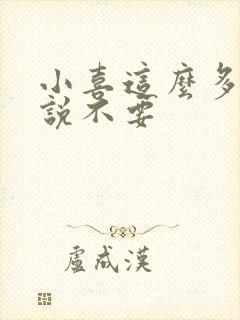 小喜這麼多
說不要
盧成漢